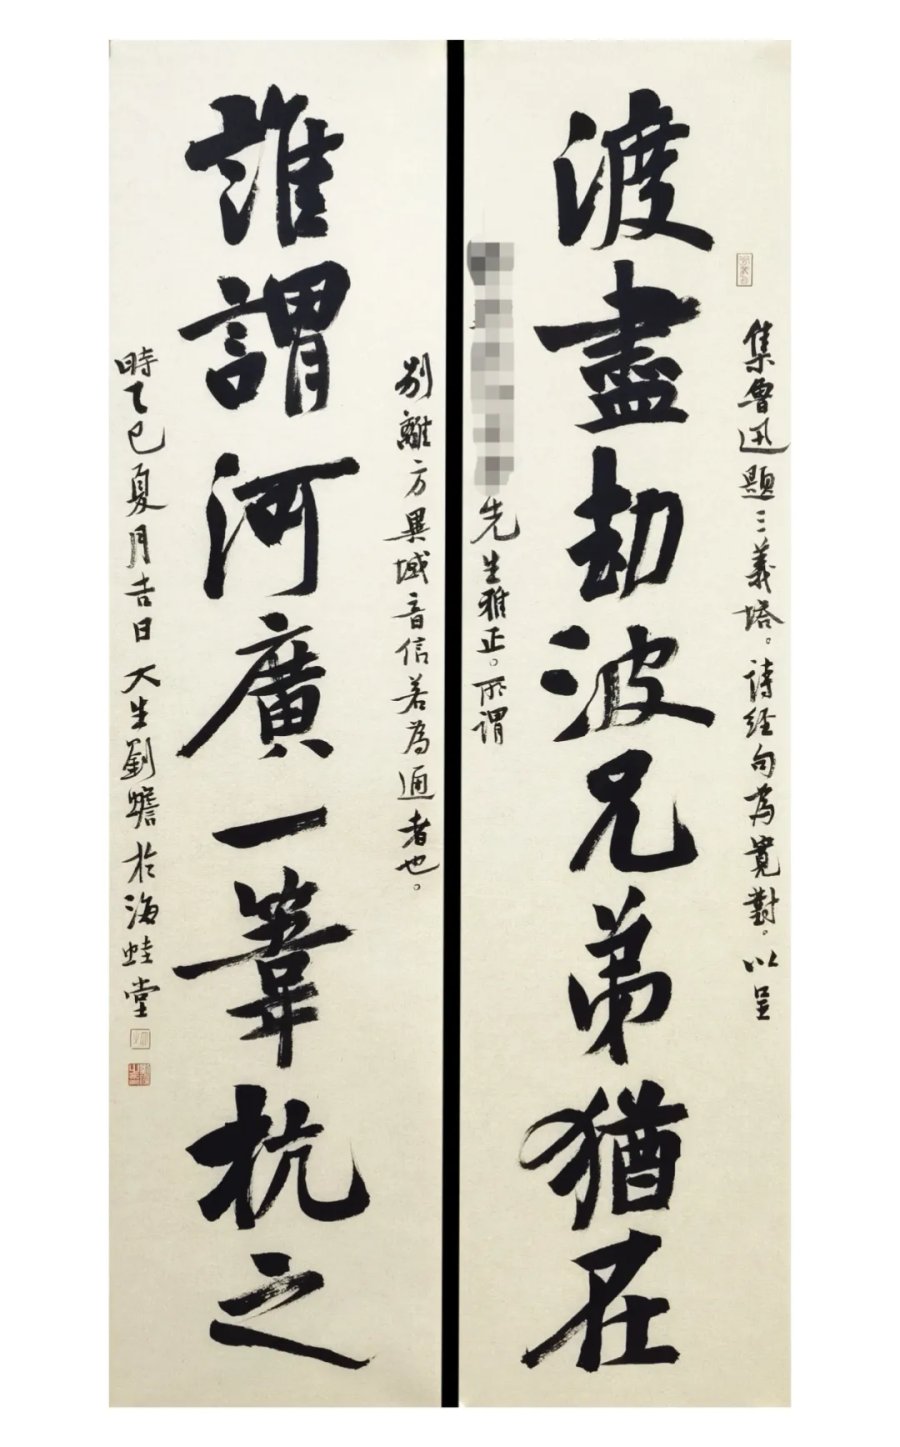 渡盡劫波兄弟猶在
集魯迅題三義塔。詩經句為寬對。以呈
先生雅正。所謂
誰謂河廣一葦杭之
別離方異域音信若為通者也。
時乙巳夏月吉日大生劉蟾於海蛙堂